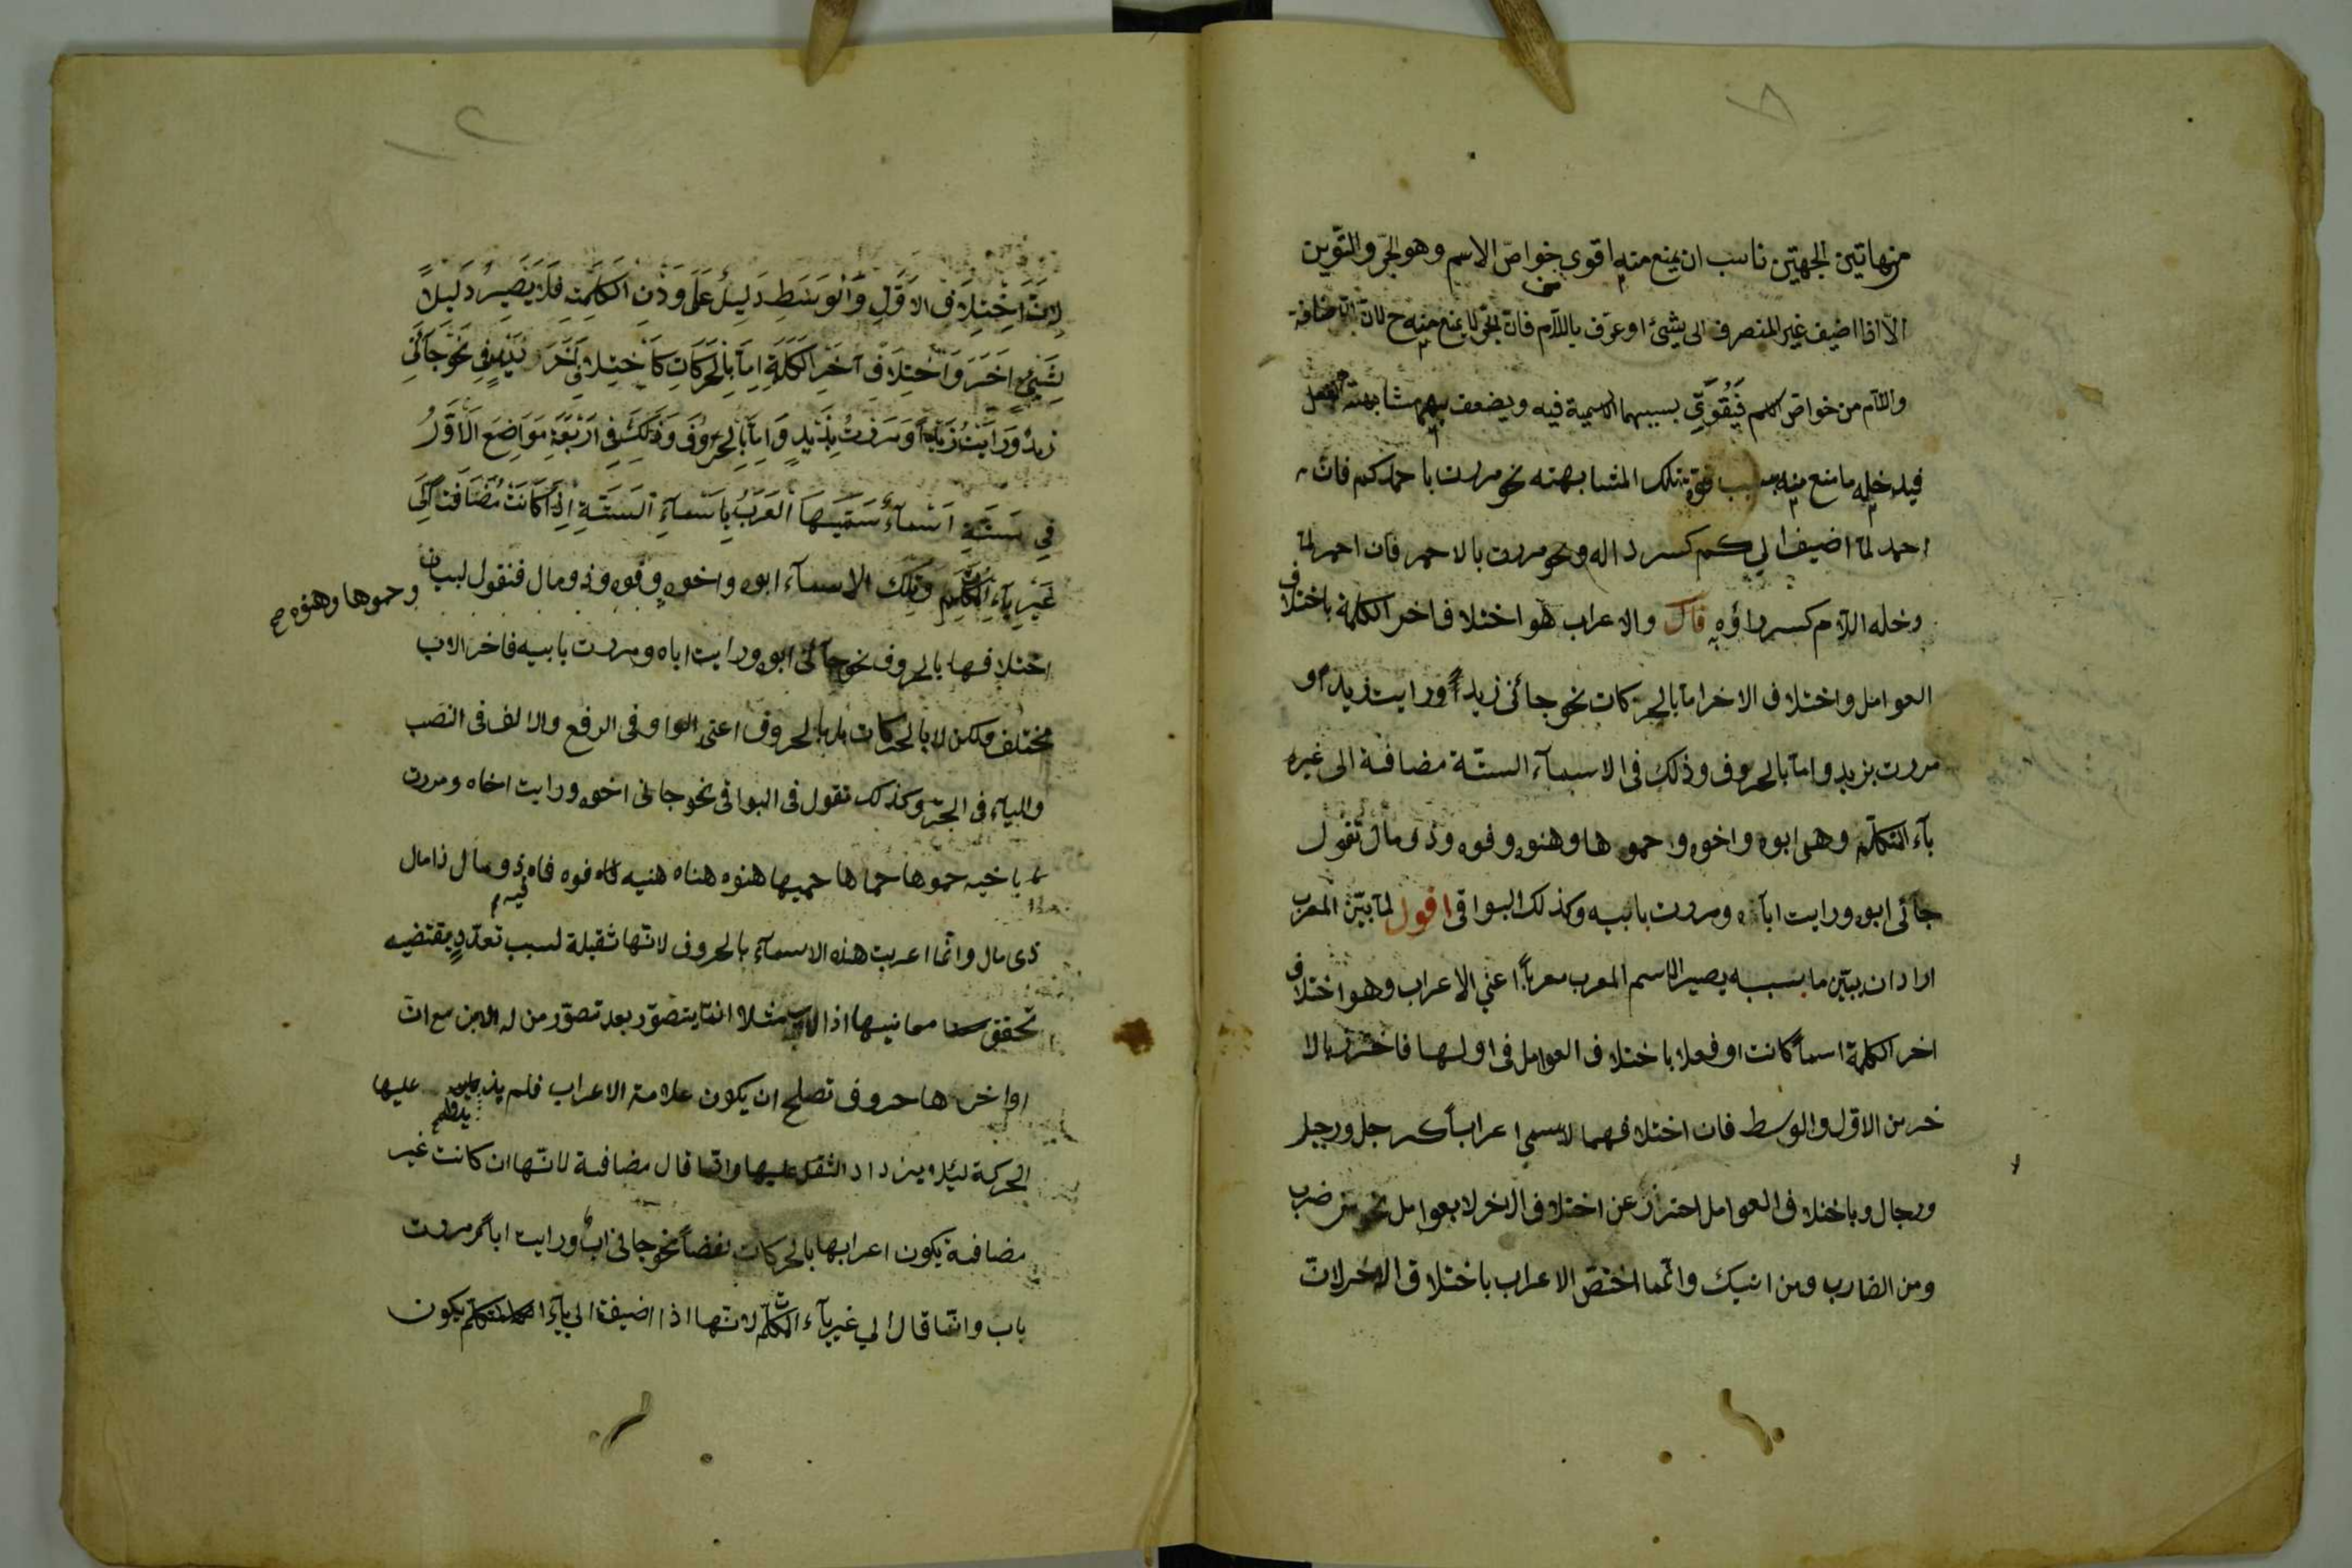 من هاتين الجهتين ناسب ان يمنع منه اقوى خواص الاسم وهو الجرّ والتنوين
الّا اذا اضيف غير المنصرف الى شئ او عرّف باللّام فانّ الجرّ لا يمنع منه ح لانّ الاضافة
واللّام من خواصّ الاسم فَيُقَوّي بسببهما الاسمية فيه ويضعف بهما مشابهته الفعل
فيدخله ما منع منه بسبب قوّة تلك المشابهته نحو مررت باحمدكم فانّ
احمد لمّا اضيف الي كم كسر داله ونحو مررت بالاحمر فان احمر لمّا
دخله اللام كسر راؤه قال والاعراب هو اختلاف اخر الكلمة باختلاف
العوامل واختلاف الاخر امّا بالحركات نحو جائنى زيدٌ ورايت زيداً و
مررت بزيدٍ وامّا بالحروف وذلك فى الاسمآء الستّة مضافة الى غير
يآء المتكلّم وهى ابوه واخوه و حموها وهنوه وفوه وذو مال تقول
جآئى ابوه ورايت اباه ومررت بابيه وكذلك البواقى اقول لمّا بيّن المعرب
اراد ان يبيّن ما بسببه يصير الاسم المعرب معرباً اعني الاعراب وهو اختلاف
اخر الكلمة اسماً كانت او فعلا باختلاف العوامل فى اولها فاحترز بالا
خر من الاوّل والوسط فان اختلافهما لا يسمي اعراباً كرجل ورجيل
ورجال وباختلاف العوامل احتراز عن اختلاف الاخر لا بعوامل نحو من ضرب
ومن الضارب ومن ابنيك وانّما اختصّ الاعراب باختلاف الاخر لانّ
لِانَّ اختِلافِ الاوّلِ وَالْوَسَطِ دَلِيلٌ عَلَى وَزْنِ الكَلِمَةِ فَلَا يَصِيرُ دَلِيلاً
لِشَيئٍ اخَرَ وَاخْتِلَافِ آخَرِ الْكَلِمَةِ اِمّا بِالْحَرَكَاتِ كَاخْتِلافِ اخَرَ زَيْدٍ فِي نَحْوِ جَائَنِي
زيدٌ وَرَايْتُ زَيْداً وَمَرَرْتُ بِزَيْدٍ وَامّا بِالْحُرُوفِ وَذَلِكَ فِي ارْبَعَةِ مَوَاضِعَ الاوّلُ
فِي سَتّةِ اسْمآءٍ سَمّيهَا الْعَرَبُ بِاسْمآءِ السّتّةِ اِذَا كَانَتْ مُضَافَة الَي
غَيْرِ يآءِ المتكلّم وتلك الاسمآء ابوه واخوه وفوه وذو مال فنقول لبيان
وحموها وهنوه صح
اختلافها بالحروف نحو جآئنى ابوه ورايت اباه ومررت بابيه فاخر الاب
مختلف ولكن لا بالحركات بل بالحروف اعنى الواو فى الرفع والالف فى النصب
واليآء فى الجرّ وكذلك تقول فى البواقى نحو جائنى اخوه ورايت اخاه ومررت
باخيه حموها حماها حميها هنوه هناه هنيه فوه فاه فيه ذو مال ذا مال
ذى مال وانّما اعربت هذه الاسمآء بالحروف لانّها ثقيلة لسبب تعدّدٍ يقتضيه
تحقق معانيها اذ الاب مثلا انّما يتصوّر بعد تصوّر من له الابن مع انّ
اواخرها حروف تصلح ان يكون علامة الاعراب فلم يزد عليها
الحركة ليئلا يزداد الثقل عليها وانّما قال مضافة لانّها ان كانت غير
مضافة يكون اعرابها بالحركات نحو جائنى ابٌ ورايت اباً ومررت
باب وانّما قال الي غير يآء المتكلّم لانّها اذا اضيفت الي يآء المتكلّم يكون